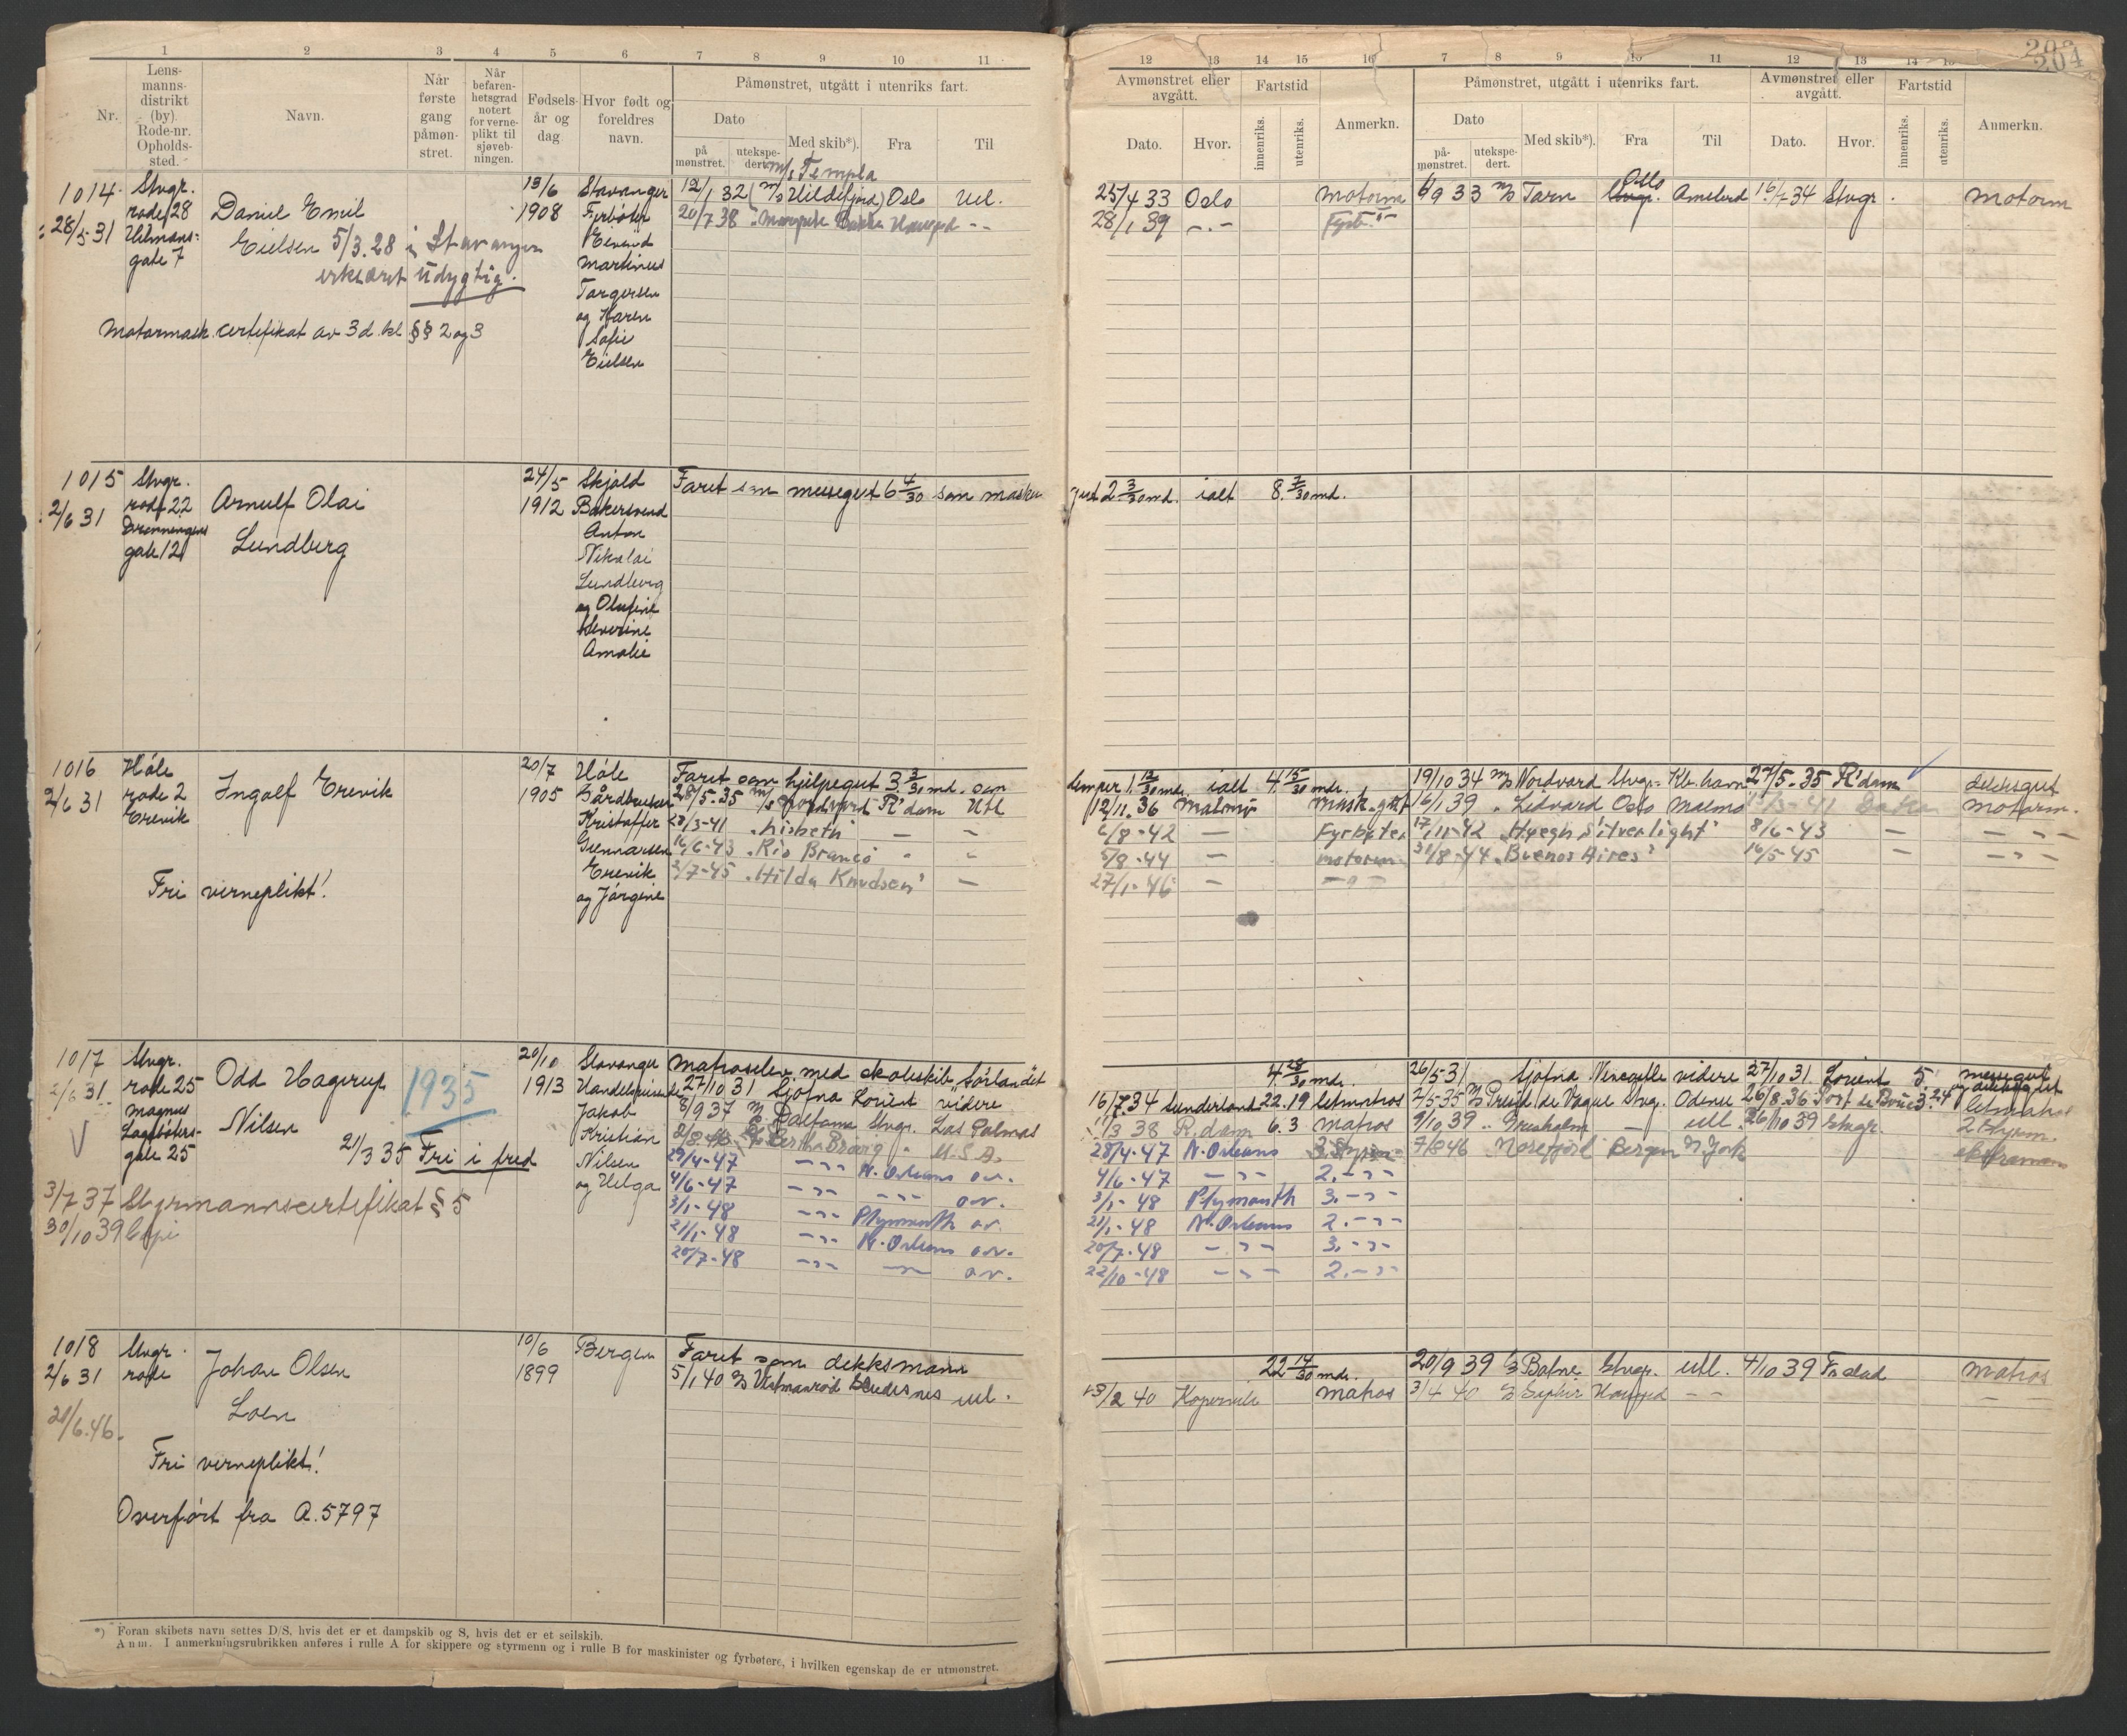 1 2 3 4 5 6 7 8 9 10 11
Nr.
Lens-
manns-
distrikt
(by).
Rode-nr.
Opholds-
sted.
Navn.
Når
første
gang
påmøn-
stret.
Når
befaren-
hetsgrad
notert
for verne-
plikt til
sjøveb-
ningen.
Fødsels-
år og
dag.
Hvor født og
foreldres
navn.
Påmønstret, utgått i utenriks fart.
Dato
på
mønstret.
utekspe-
dert.
Med skib*).
Fra
Til
12 13 14 15 16 7 8 9 10 11 12 13 14 15
204
Avmønstret eller
avgått.
Fartstid
Dato.
Hvor.
innenriks.
utenriks.
Anmerkn.
Påmønstret, utgått i utenriks fart.
Dato
på-
mønstret.
utekspe-
dert.
Med skib*).
Fra
Til
Avmønstret eller
avgått.
Fartstid
Dato.
Hvor.
innenriks.
utenriks.
Anmerkn.
1014
28/5 31
Stvgr.
rode 28
gate 7
Daniel Emil
Eielsen 5/3.28 i Stavanger
erklæret udygtig.
Motormask. certifikat av 3d. kl. §§ 2 og 3
13/6
1908
Stavanger
Fyrbøter
Eivind
Martinus
Torgersen
og Karen
Sofie
Eielsen
M/S Templa
12/1 32 M/S Hildefjord Oslo Utl.
20/7 38
25/4 33 Oslo Motorm
28/1 39 -.- Fyrb.
6/9 33 M/S Tarn Oslo
16/7 34 Stvgr. Motorm
1015
2/6 31
Stvgr.
rode 22
Dronningens
gate 12
Arnulf Olai
Lundberg
24/5
1912
Skjold
Bakersvend
Anton
Nikolai
Lundberg
og Olufine
Severine
Amalie
Faret som messegut 6 4/30 som maskin
gut 2 3/30 md. ialt 8 7/30 md.
1016
2/6 31
Høle
rode 2
Erevik
Ingolf Erevik
Fri verneplikt!
20/7
1905
Høle
Gårdbruker
Kristoffer
Gunnarsen
Erevik
og Jørgine
Faret som hjelpegut 3 3/30 md. som
28/5-35 M/S Nordvard R'dam Utl
28/3-41 "Lisbeth" — -
16/6-43 "Rio Branco" - -
2/7-45 "Hilda Knudsen" —
lemper 1 12/30 md. ialt 4 15/30 mdr.
12/11.36 Malmø Mask.gutt
6/8-42 — Fyrbøter
5/8-44 — motorm.
27/1-46 — —"—
19/10 34 M/S Nordvard Stvgr. Kb.havn 27/5-35 R'dam dekksgut
16/1 39 " Lidvard Oslo Malmø Motorm.
17/11-42 "Høegh Silverlight" 8/6-43 — — " —
31/8-44 "Buenos Aires" 16/5-45 — — " —
1017
2/6 31
Stvgr.
rode 25
Magnus
Lagabøters-
gate 25
Odd Hagerup
Nilsen
1935
21/3 35 Fri i fred
3/7 37 Styrmannscertifikat § 5
30/10 39
20/10
1913
Stavanger
Jakob
Kristian
Nilsen
og Helga
Matroselev med skoleskib Sørlandet
27/10 31 Sjofna Lorient videre
8/9 37 M/S Dalfama Stvgr. Las Palmas
U.S.A.
29/4-47 — " — N. Orleans o.v.
4/6-47 — " — — " — o.v.
3/1-48 — " — Plymouth o.v.
21/1-48 — " — N. Orleans o.v.
20/7-48 — " — — o.v.
4 28/30 mdr.
16/7 34 Sunderland 22.19 letmatros
38 R.dam 6.3 matros
28/4-47 N. Orleans 3.
4/6-47 — " — 2. — " —
3/1-48 Plymouth 3. — " —
21/1-48 N. Orleans 2. — " —
20/7-48 — " — 3. — " —
22/10-48 — " — 2. — " —
26/5 31 Sjofna videre 27/10 31 Lorient 5. messegut
Stvgr. Odense 26/8.36 letmatros
9/10 39 — utl. 26/10 39 Stvgr.
7/8 46 Norefjord Bergen N. York
1018
2/6 31
20/6.46.
Stvgr.
rode
Johan Olsen
Loen
Fri verneplikt!
Overført fra A. 5797
10/6
1899
Bergen
Faret som dekksmann
5/1 40 Skudesnes utl.
22 14/30 mdr.
40 Kopervik matros
20/9 39 D/S Stvgr. utl. 4/10 39 Fr.stad Matros
3/4 40 — — —
*) Foran skibets navn settes D/S, hvis det er et dampskib og S, hvis det er et seilskib.
Anm. I anmerkningsrubrikken anføres i rulle A for skippere og styrmenn og i rulle B for maskinister og fyrbøtere, i hvilken egenskap de er utmønstret.